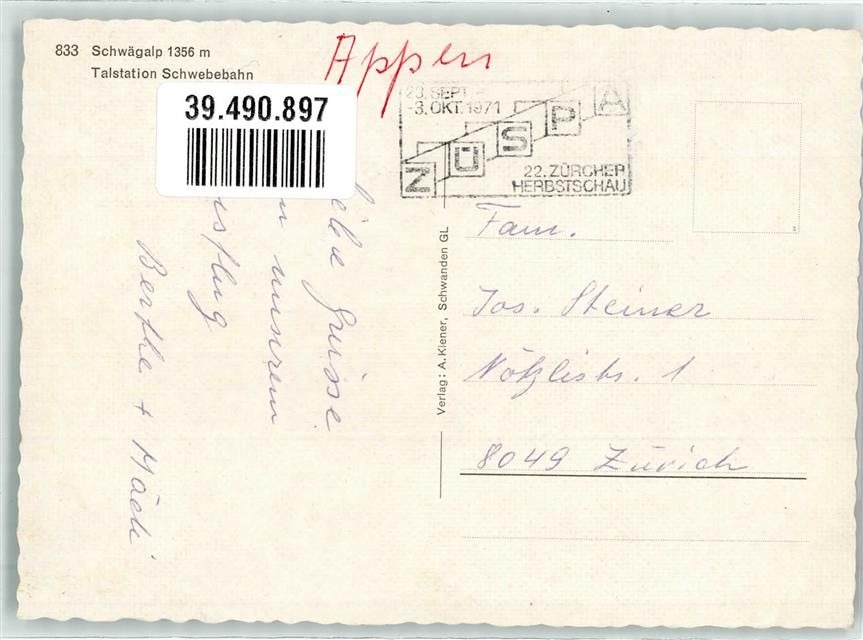 833 Schwägalp 1356 m
Talstation Schwebebahn
Appen
39.490.897
23. SEPT. -
-3. OKT. 1971
ZÜSPA
22. ZÜRCHER
HERBSTSCHAU
Grüsse
unsrem
Berthe + Mädi
Verlag: A. Kiener, Schwanden GL
Fam.
Jos. Steiner
Nötzlistr. 1
8049 Zürich